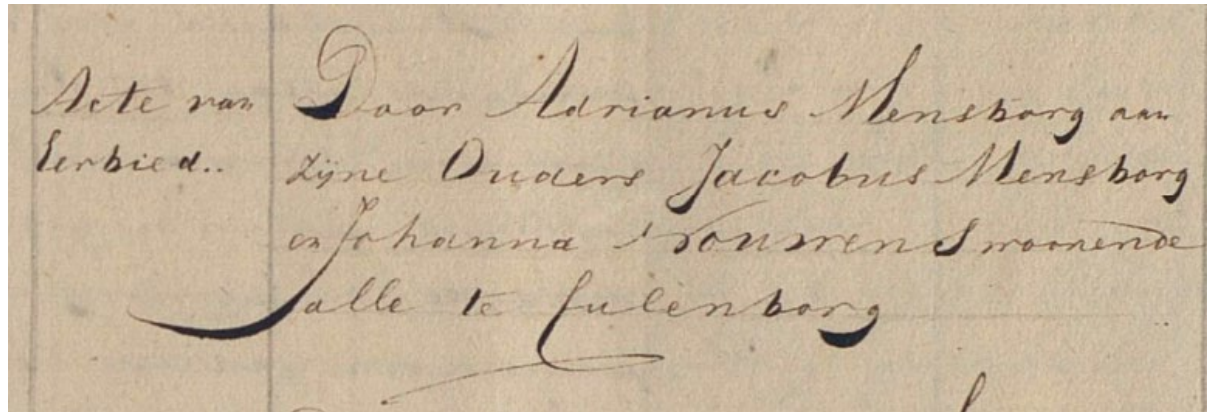 Acte van
Eerbied..
Door Adrianus Mensborg aan
zijne Ouders Jacobus Mensborg
en Johanna woonende
alle te Culenborg